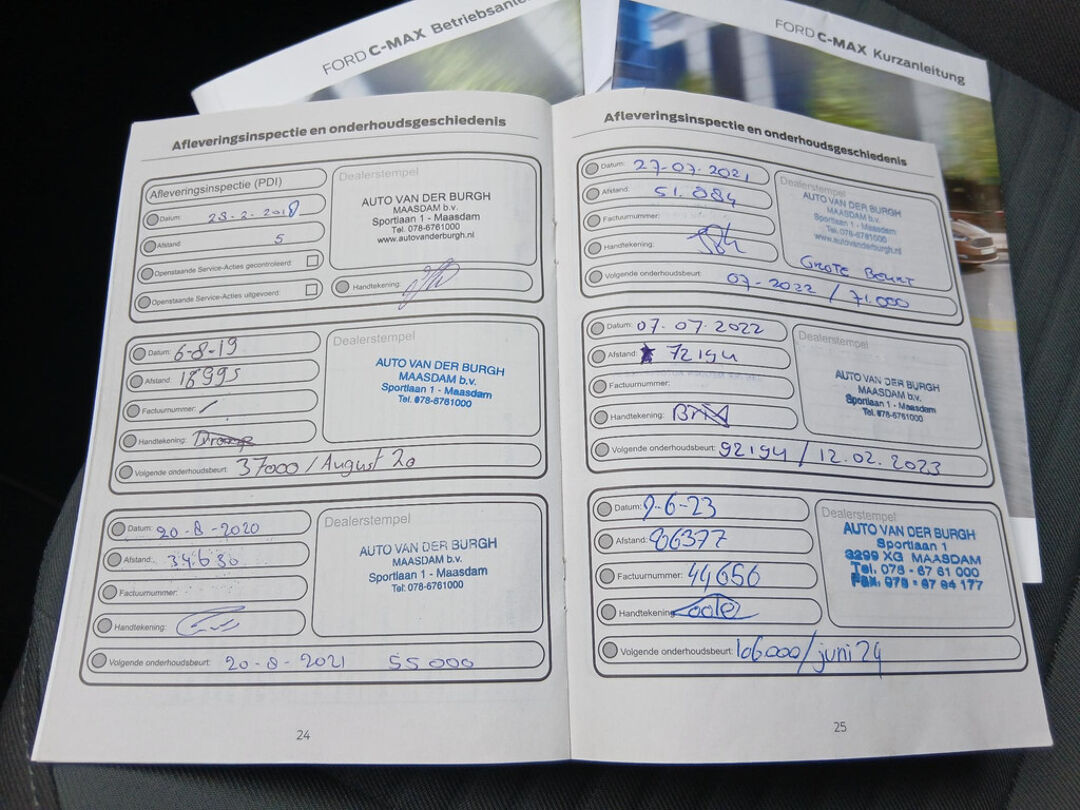 FORD C-MAX Betriebsanlei
FORD C-MAX Kurzanleitung
Afleveringsinspectie en onderhoudsgeschiedenis
Afleveringsinspectie (PDI)
Datum: 28-2-2018
Afstand 5
Openstaande Service-Acties gecontroleerd:
Openstaande Service-Acties uitgevoerd:
Dealerstempel
AUTO VAN DER BURGH
MAASDAM b.v.
Sportlaan 1 - Maasdam
Tel. 078-6761000
www.autovanderburgh.nl
Handtekening:
Datum: 6-8-19
Afstand: 18995
Factuurnummer: /
Handtekening:
Volgende onderhoudsbeurt: 37000 / August 20
Dealerstempel
AUTO VAN DER BURGH
MAASDAM b.v.
Sportlaan 1 - Maasdam
Tel. 078-6761000
Datum: 20-8-2020
Afstand: 34636
Factuurnummer:
Handtekening:
Volgende onderhoudsbeurt: 20-8-2021 55000
Dealerstempel
AUTO VAN DER BURGH
MAASDAM b.v.
Sportlaan 1 - Maasdam
Tel. 078-6761000
24
Afleveringsinspectie en onderhoudsgeschiedenis
Datum: 27-07-2021
Afstand: 51.084
Factuurnummer:
Handtekening:
Volgende onderhoudsbeurt:
07-2022 / 71.000
Dealerstempel
AUTO VAN DER BURGH
MAASDAM b.v.
Sportlaan 1 - Maasdam
Tel. 078-6761000
www.autovanderburgh.nl
GROTE BEURT
Datum: 07.07.2022
Afstand: 72194
Factuurnummer:
Handtekening:
Volgende onderhoudsbeurt: 92194 / 12.02.2023
Dealerstempel
AUTO VAN DER BURGH
MAASDAM b.v.
Sportlaan 1 - Maasdam
Tel. 078-6761000
Datum: 9-6-23
Afstand: 86377
Factuurnummer: 44656
Handtekening:
Volgende onderhoudsbeurt: 106000/juni 24
Dealerstempel
AUTO VAN DER BURGH
Sportlaan 1
3299 XG MAASDAM
Tel. 078 - 67 61 000
Fax. 078 - 67 64 177
25